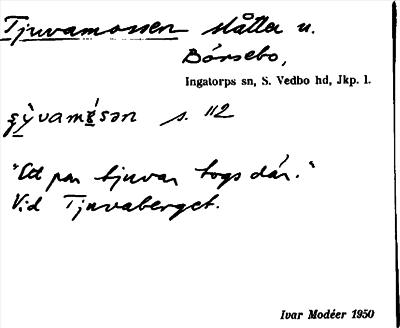 Tjuvamossen slåtter u.
Börsebo,
Ingatorps sn, S. Vedbo hd, Jkp. l.
s. 112
"Ett par tjuvar togs där."
Vid Tjuvaberget.
Ivar Modéer 1950